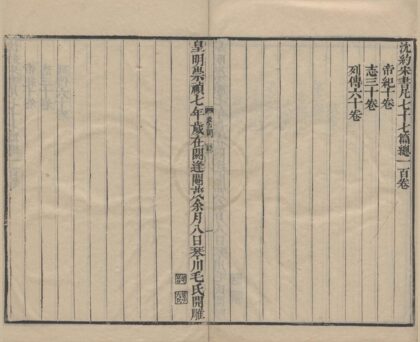 沈約宋書凡七十七篇總一百卷
帝紀十卷
志三十卷
列傳六十卷
皇明崇禎七年歲在閼逢閹茂余月八日琴川毛氏開雕